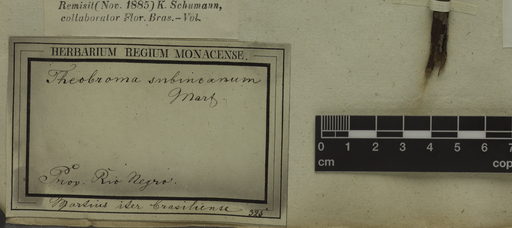 Remisit (Nov. 1885) K. Schumann,
collaborator Flor. Bras.-Vol.
HERBARIUM REGIUM MONACENSE.
Theobroma subincanum
Mart.
Prov. Rio Negro.
Martius iter Brasiliense
0 1 2 3 4 5 6 7
cm cop